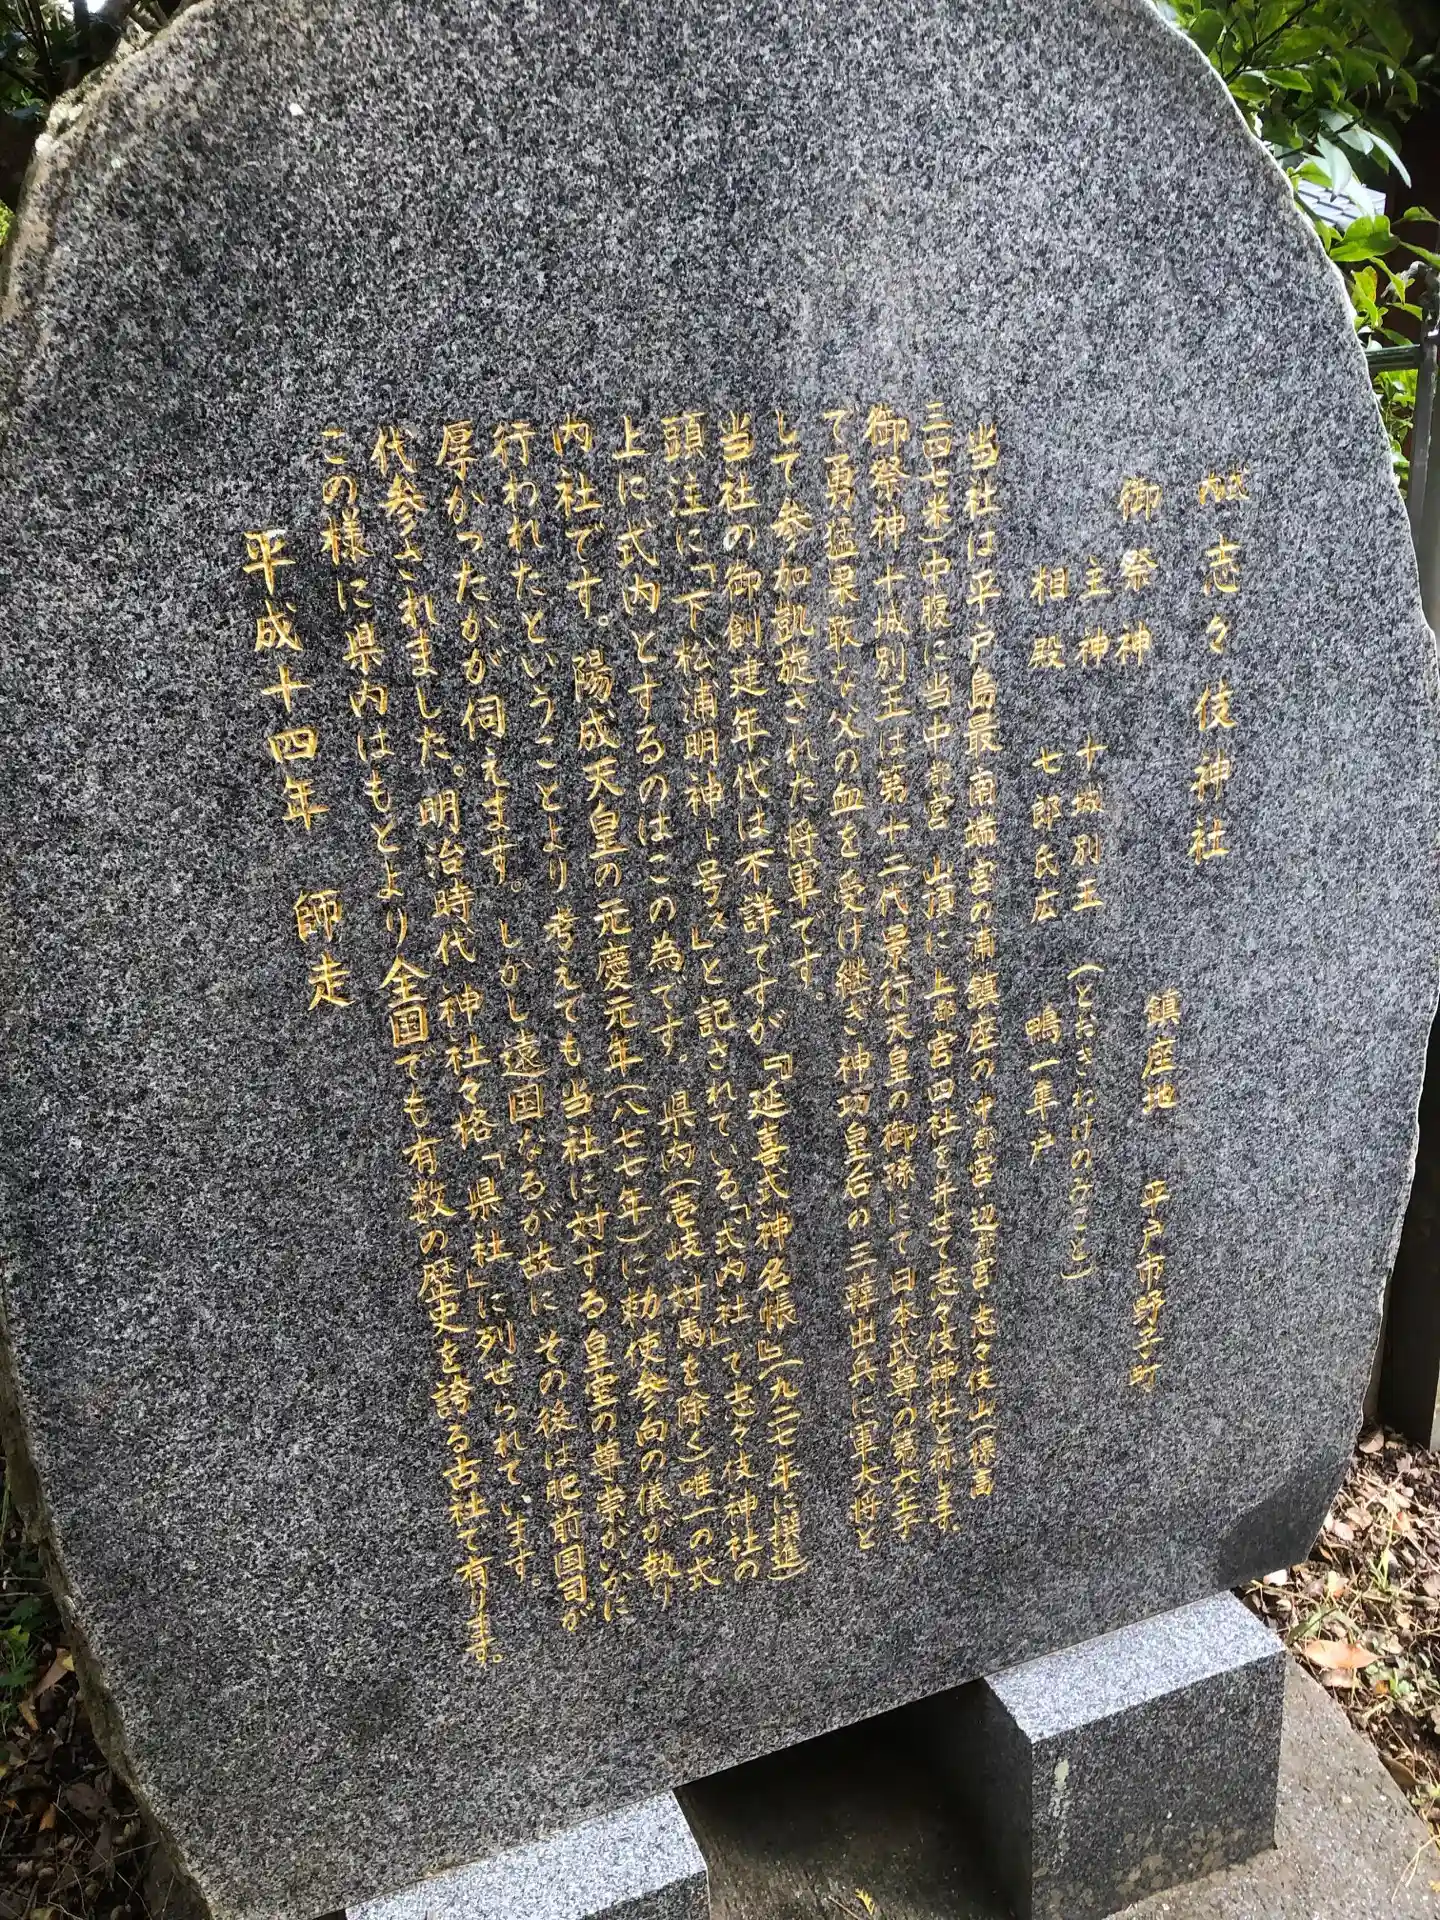 志々伎神社
鎮座地 平戸市野子町
御祭神
主神 十城別王 (とおきわけのみこと)
相殿 七郎氏広 鴨一隼戸
当社は平戸島最南端宮の浦鎮座の沖都宮・辺都宮・志々伎山(標高
三四七米)中腹に当中都宮 山頂に上都宮四社を并せて志々伎神社と称します。
御祭神十城別王は第十二代景行天皇の御孫にて 日本武尊の第六王子
て勇猛果敢な父の血を受け継ぎ神功皇后の三韓出兵に軍大将と
して参加凱旋された将軍です。
当社の御創建年代は不詳ですが『延喜式神名帳』(九二七年に撰進)
頭注に「下松浦明神ト号ス」と記されている「式内社」で志々伎神社の
上に式内とするのはこの為です。県内(壱岐・対馬を除く)唯一の式
内社です。陽成天皇の元慶元年(八七七年)に勅使参向の儀が執り
行われたということより 考えても当社に対する皇室の尊崇がいかに
厚かったかが伺えます。しかし遠国なるが故に その後は肥前国司が
代参されました。明治時代 神社々格「県社」に列せられています。
この様に県内はもとより全国でも有数の歴史を誇る古社て有ります。
平成十四年 師走